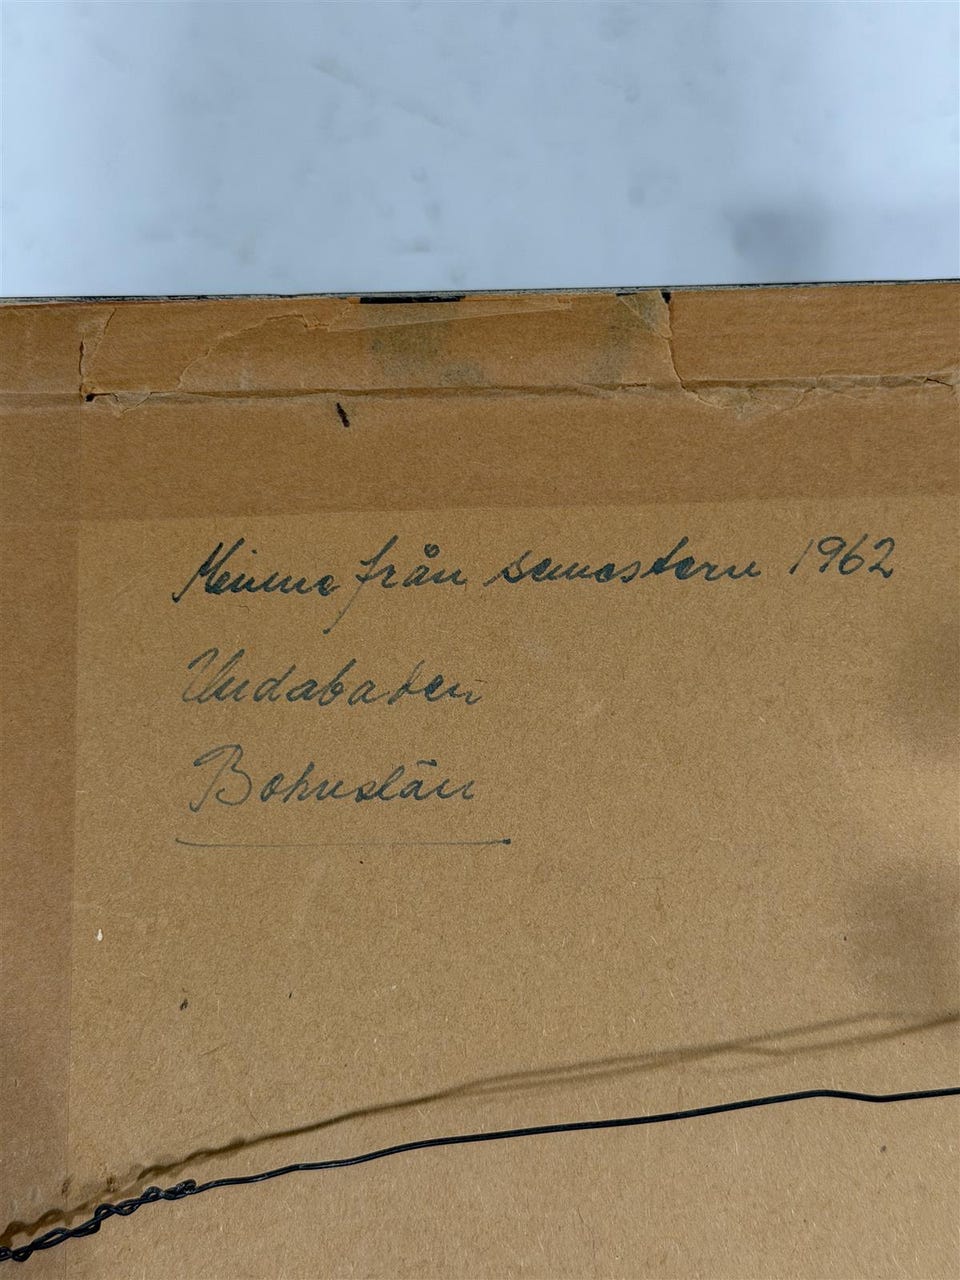 Minne från semestern 1962
Undabaden
Bohuslän